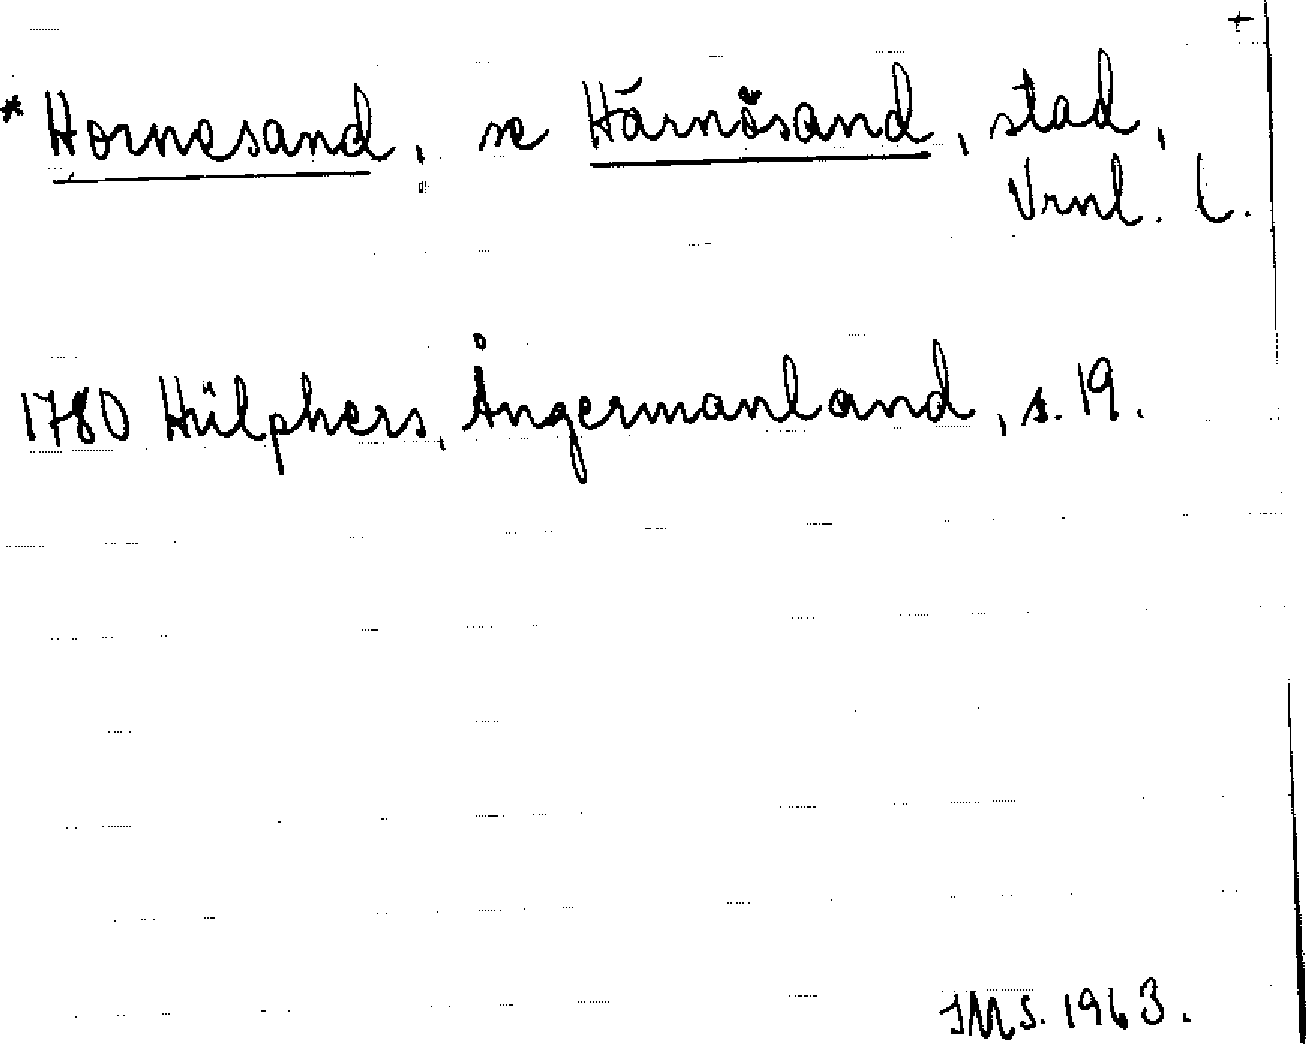 +
* Hornesand, se Härnösand, stad,
Vrnl. l.
1780 Hülphers, Ångermanland, s. 19.
IMS. 1963.